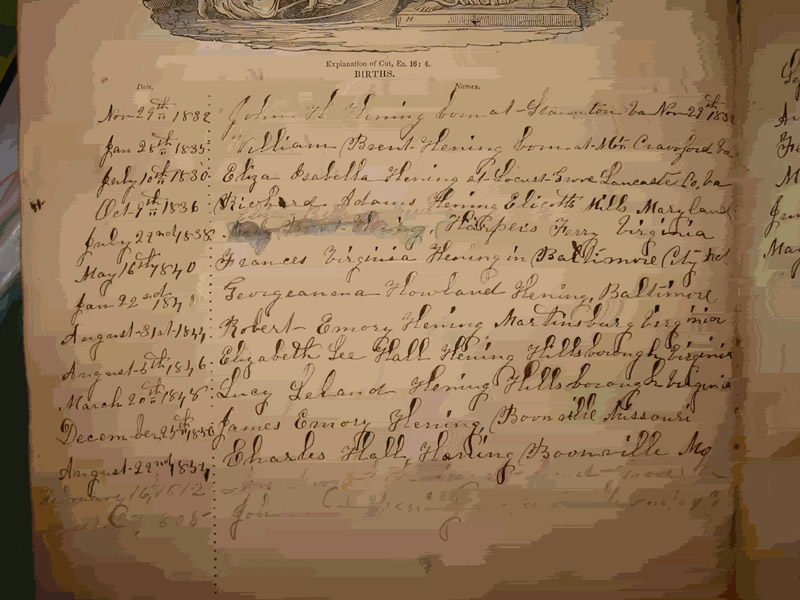 Explanation of Cut, Ex. 16: 4.
BIRTHS.
Date. Names.
Nov 29th 1832 John H Hening born at Staunton Va Nov 29th 1832
Jan 28th 1835 William Brent Hening born at Mtn Crawford Va
July 10th 1830 Eliza Isabella Hening at Locust Grove Lancaster Co, Va
Oct 9th 1836 Richard Adams Hening Elicotts Mills Maryland
July 22nd 1838 Brent Hening, Harpers Ferry Virginia
May 16th 1840 Frances Virginia Hening in Baltimore City Md
Jan 22nd 184 Georgeanna Howland Hening, Baltimore
August 31st 1844 Robert Emory Hening Martinsburg Virginia
August 5th 1846 Elizabeth Lee Hall Hening Hillsborough Virginia
March 20th 1848 Lucy Leland Hening Hillsborough Virginia
December 25th 1850 James Emory Hening, Boonville Missouri
August 22nd 1854 Charles Hall, Hening Boonville Mo
February 16, 1812